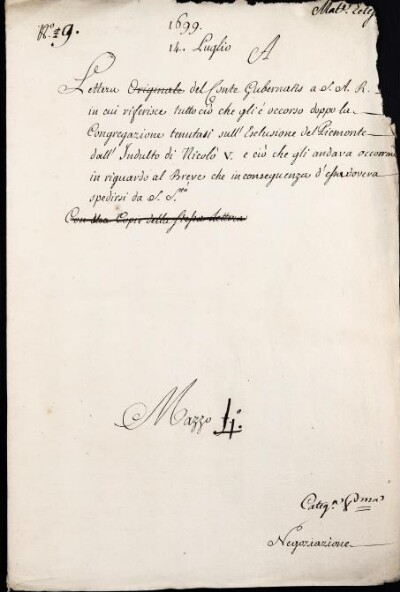 Mat.ª Eccl
N.º 9.
1699.
14. Luglio
A
Lettera Originale del Conte Gubernatis a S. A. R.
in cui riferisce tutto ciò che gli è occorso doppo la
Congregazione tenutasi sull' Esclusione del Piemonte
dall' Indulto di Nicolò V. e ciò che gli andava occorrendo
in riguardo al Breve che in conseguenza d'essa doveva
spedirsi da S. S.tà
Con Una Copia della stessa Lettera
Mazzo 4.º
Categ.ª P.ma
Negoziazione